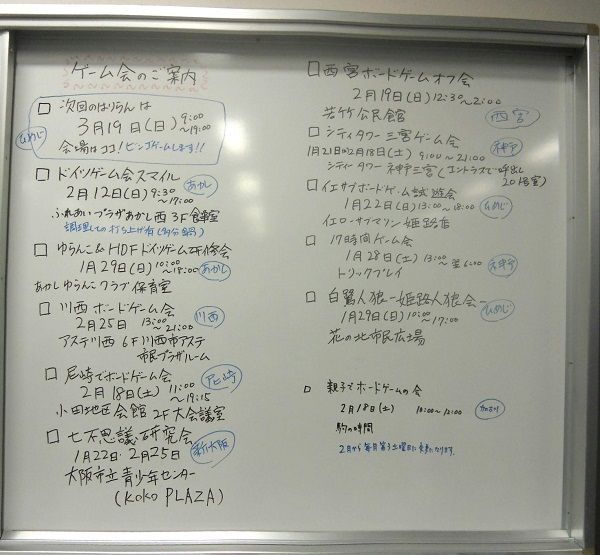 ゲーム会のご案内
□ 次回のはりらんは
ひめじ
3月19日(日) 9:00~19:00
会場はココ! ビンゴゲームします!!
□ ドイツゲーム会スマイル
2月12日(日) 9:30~17:00 あかし
ふれあいプラザあかし西 3F 食事室
調理しての打ち上げ有(多分鍋)
□ ゆらんこ&HDFドイツゲーム研修会
1月29日(日) 10:00~18:00 あかし
あかしゆらんこクラブ保育室
□ 川西ボードゲーム会
2月25日 13:00~21:00 川西
アステ川西 6F 川西市アステ
市民プラザルーム
□ 尼崎でボードゲーム会
2月18日(土) 11:00~19:15 尼崎
小田地区会館 2F 大会議室
□ 七不思議研究会
1月22日・2月25日 新大阪
大阪市立青少年センター
(KOKO PLAZA)
□ 西宮ボードゲームオフ会
2月19日(日) 12:30~2:00
若竹公民館 西宮
□ シティタワー三宮ゲーム会 神戸
1月21日の2月18日(土) 9:00~21:00
シティータワー神戸三宮(エントランスで呼出
201号室)
□ イエサブボードゲーム試遊会
1月22日(日) 13:00~18:00 ひめじ
イエローサブマリン姫路店
□ 17時間ゲーム会
1月28日(土) 13:00~翌6:00 神戸
トリックプレイ
□ 白鷺人狼-姫路人狼会-
1月29日(日) 10:00~17:00 ひめじ
花の北市民広場
□ 親子でボードゲームの会
2月18日(土) 10:00~12:00
駒の時間
2月から毎月第3土曜日に変更になります。